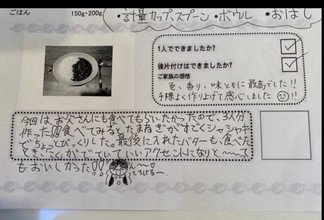 ごはん 150g・200g
・計量カップ、スプーン・ボウル・おはし
1人でできましたか？
後片付けはできましたか？
ご家族の感想
色、香り、味ともに最高でした!!
手際よく作り上げて感心しました
今回は、お父さんにも食べてもらいたかったので、3人分
作った!!食べてみると、たまねぎがすごくシャシャキ
でちょっとびっくりした。最後に入れたバターも、食べた
ときにていいアクセントになりと〜〜って
もおいしかった!!